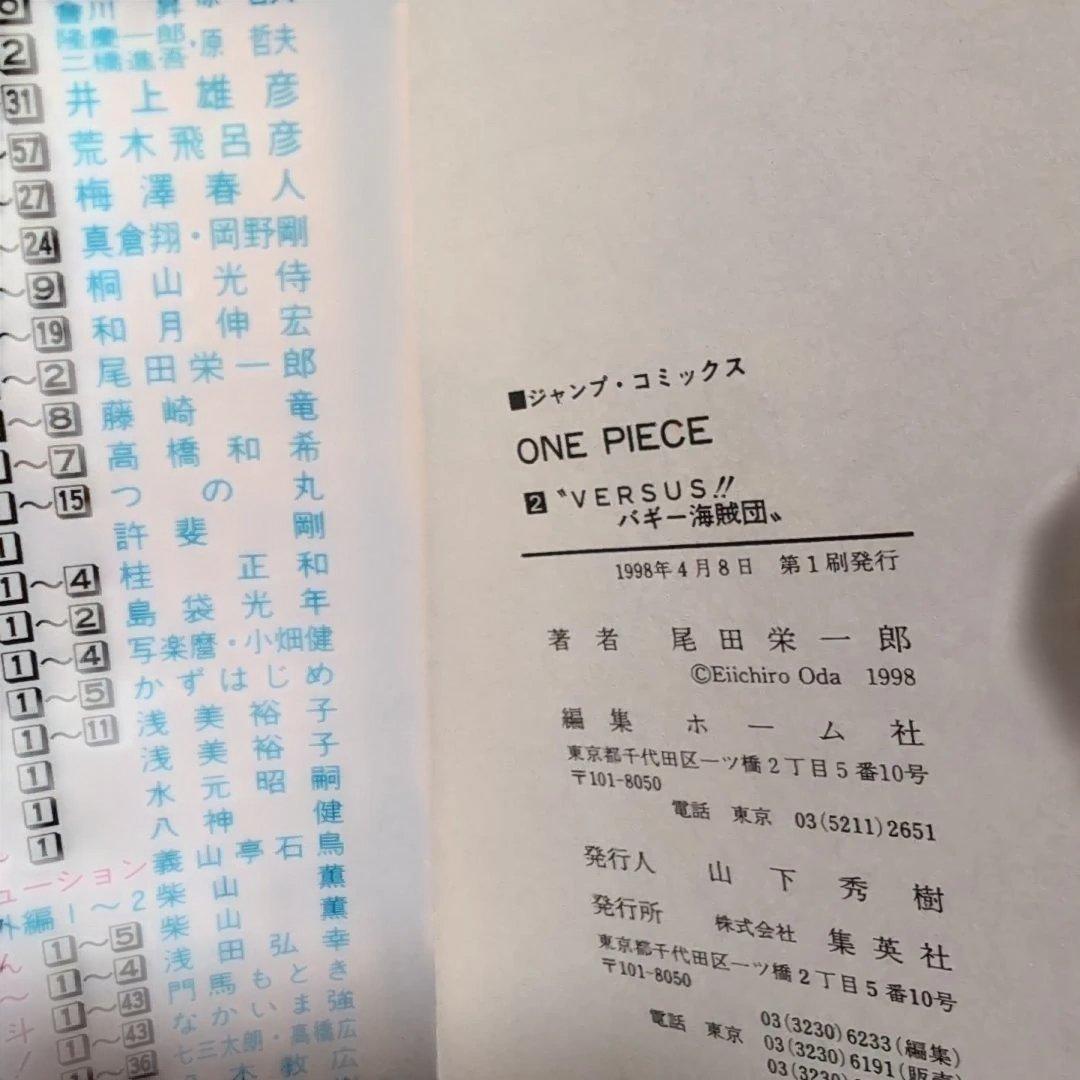 2 隆慶一郎・原 哲夫
二橋進吾
31 井上雄彦
~57 荒木飛呂彦
~27 梅澤春人
~24 真倉翔・岡野剛
~9 桐山光侍
~19 和月伸宏
~2 尾田栄一郎
~8 藤崎竜
~7 高橋和希
~15 つの丸
1 許斐剛
1~4 桂正和
1~2 島袋光年
1~4 写楽麿・小畑健
1~5 かずはじめ
1~11 浅美裕子
1 浅美裕子
1 水元昭嗣
1 八神健
義山亭石鳥
ューション 柴山薫
外編1~2 柴山薫
1~5 浅田弘幸
1~4 門馬もとき
1~43 なかいま強
1~43 七三太朗・高橋広
1~36
■ジャンプ・コミックス
ONE PIECE
2 〝VERSUS!!
バギー海賊団〟
1998年4月8日 第1刷発行
著者 尾田栄一郎
©Eiichiro Oda 1998
編集 ホーム社
東京都千代田区一ツ橋2丁目5番10号
〒101-8050
電話 東京 03(5211)2651
発行人 山下秀樹
発行所 株式会社 集英社
東京都千代田区一ツ橋2丁目5番10号
〒101-8050
電話 東京 03(3230)6233(編集)
03(3230)6191(販売)
03(3230)